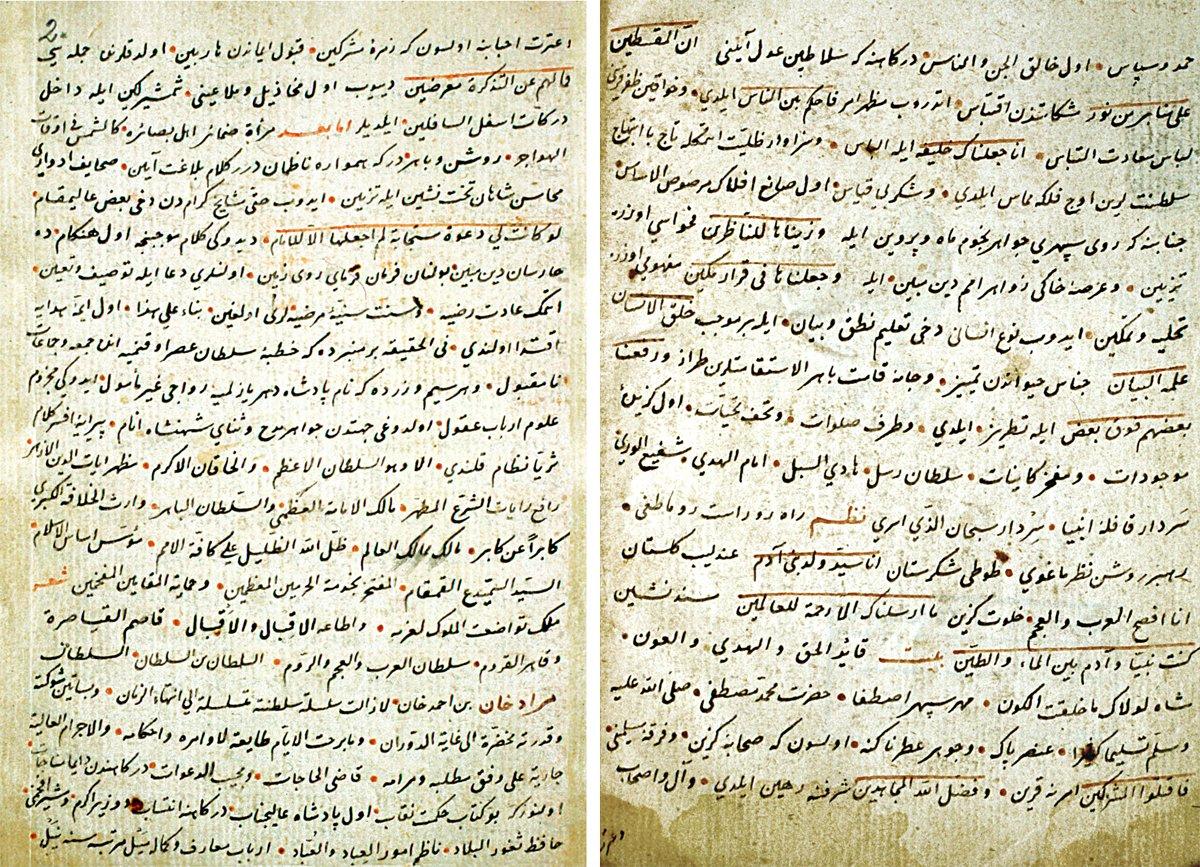 حمد و سپاس • اول خالق الجن والناس دركاهنه كه سلاطين عدل آيينى ان المقسطين
على منابر من نور مشكاتندن اقتباس • اتدروب مظهر امر فاحكم بين الناس ايلدى • وخواقين
لباس سعادت التباس • انا جعلناك خليفه ايله الباس • وسزاوار ظليت
سلطنت اوج فلكه مماس ايلدى • وشكر بى قياس • اول صانع افلاك مرصوص الاساس
جنابنه كه روى سپهرى جواهر نجوم ماه و پروين ايله وزيناها للناظرين فحواسى اوزره
تزيين • وعرصۀ خاكى زواهر امم دين مبين • ايله وجعلناها فى قرار مكين اوزره
تحليه وتمكين • ايدوب نوع انسانى دخى تعليم نطق وبيان • ايله بر موجب خلق الانسان
علمه البيان جناس حيواندن تمييز • وجامۀ قامت طراز ورفعنا
بعضهم فوق بعض ايله تطريز • ايلدى • وطرف صلوات • وتحف تحيات • اول كزين
موجودات • ومفخر كاينات • سلطان رسل • هادى السبل • امام الهدى • شفيع الورى
سردار قافلۀ انبيا • سزدار سبحان الذى اسرى نظم راه رو راست رو ماطغى •
رهبر روشن نظر ماغوى • طوطى شكرستان انا سيد ولد بنى آدم عندليب كلستان
انا افصح العرب والعجم • خلوت كزين ما ارسلناك الا رحمة للعالمين مسند نشين
كنت نبيا وآدم بين الماء والطين بيت قائد الحق والهدى والعون •
شاه لولاك ما خلقت الكون • مهر سپهر اصطفا • حضرت محمد مصطفى • صلى الله عليه
وسلم تسليما كثيرا • عنصر پاك • وجوهر عطرناكنه • اولسون كه صحابۀ كزين • وفرقۀ
فاقتلوا المشركين امرنه قرين • وفضل الله المجاهدين شرفنه رهين ايلدى • وآل واصحاب
2
اعترت احبابنه اولسون كه زمرۀ مشركين • قبول ايماندن هاربين • اولدقلرى جمله سى
فالهم عن التذكرة معرضين ديوب اول مخاذيل وملاعينى • شمشير كين ايله داخل
دركات اسفل السافلين • ايلديلر اما بعد مرآة ضمائر اهل بصائره • كالشمس فى اوقات
الهواجر • روشن وباهردر كه همواره ناظمان درر كلام بلاغت آيين • صحايف ادوارى
محاسن شاهان تخت نشين ايله تزيين • ايدوب حتى مشايخ كرام دن دخى بعض عاليمقام
لو كانت لى دعوة مستجابة لم اجعلها الا للامام • ديدوكى كلام موجبنجه اول هنكام • ده
حارسان دين مبين بولنان فرمان فرماى روى زمين • اولنلرى دعا ايله توصيف وتعيين •
اتمك عادت رضيه • وسنت سنيۀ مرضيه لرى اولمغين • بناء على هذا • اول ائمۀ هدايه
اقتدا اولندى • فى الحقيقه بر منبرده كه خطبۀ سلطان عصر اوقنميه انده جمعه وجماعت
نامقبول • وهر سيم وزرده كه نام پادشاه دهر يازلميه رواجى غير مأمول • ايدوكى مجزوم
علوم ارباب عقول • اولدوغى جهتدن جواهر مدح وثناى شهنشاه انام • پيرايۀ افسر كلام
ثريا نظام قلندى • الا وهو السلطان الاعظم • والخاقان الاكرم • مظهر ايات الدين الازهر
رافع رايات الشرع المطهر • مالك الامامة العظمى والسلطان الباهر • وارث الخلافة الكبرى
كابرا عن كابر • مالك ممالك العالم • ظل الله الظليل على كافة الامم • مؤسس اساس الاسلام
السيد السميدع القمقام • المفتخر بخدمة الحرمين المعظمين • وحماية المقامين المفخمين شعر
ملك تواضعت الملوك لعزه • واطاعه الاقبال والاقبال • قاصم القياصرة
وقاهر القروم • سلطان العرب والعجم والروم • السلطان بن السلطان • السلطان
مراد خان بن احمد خان • لا زالت سلسلة سلطنته متسلسلة الى انتهاء الزمان • وبساتين شوكته
وقدرته مخضرة الى غاية الدوران • وما برحت الايام طايعة لاوامره واحكامه • والاجرام العالية
جارية على وفق مطلبه ومرامه • قاضى الحاجات • ومجيب الدعوات • دركاهندن
اولنوركه بو كتاب حكمت نقاب • اول پادشاه عاليجناب • دركاهنه انتساب • ووزير اكرم ومشير افخمى
حافظ ثغور البلاد • ناظم امور العباد والعباد • ارباب معارف وكماله